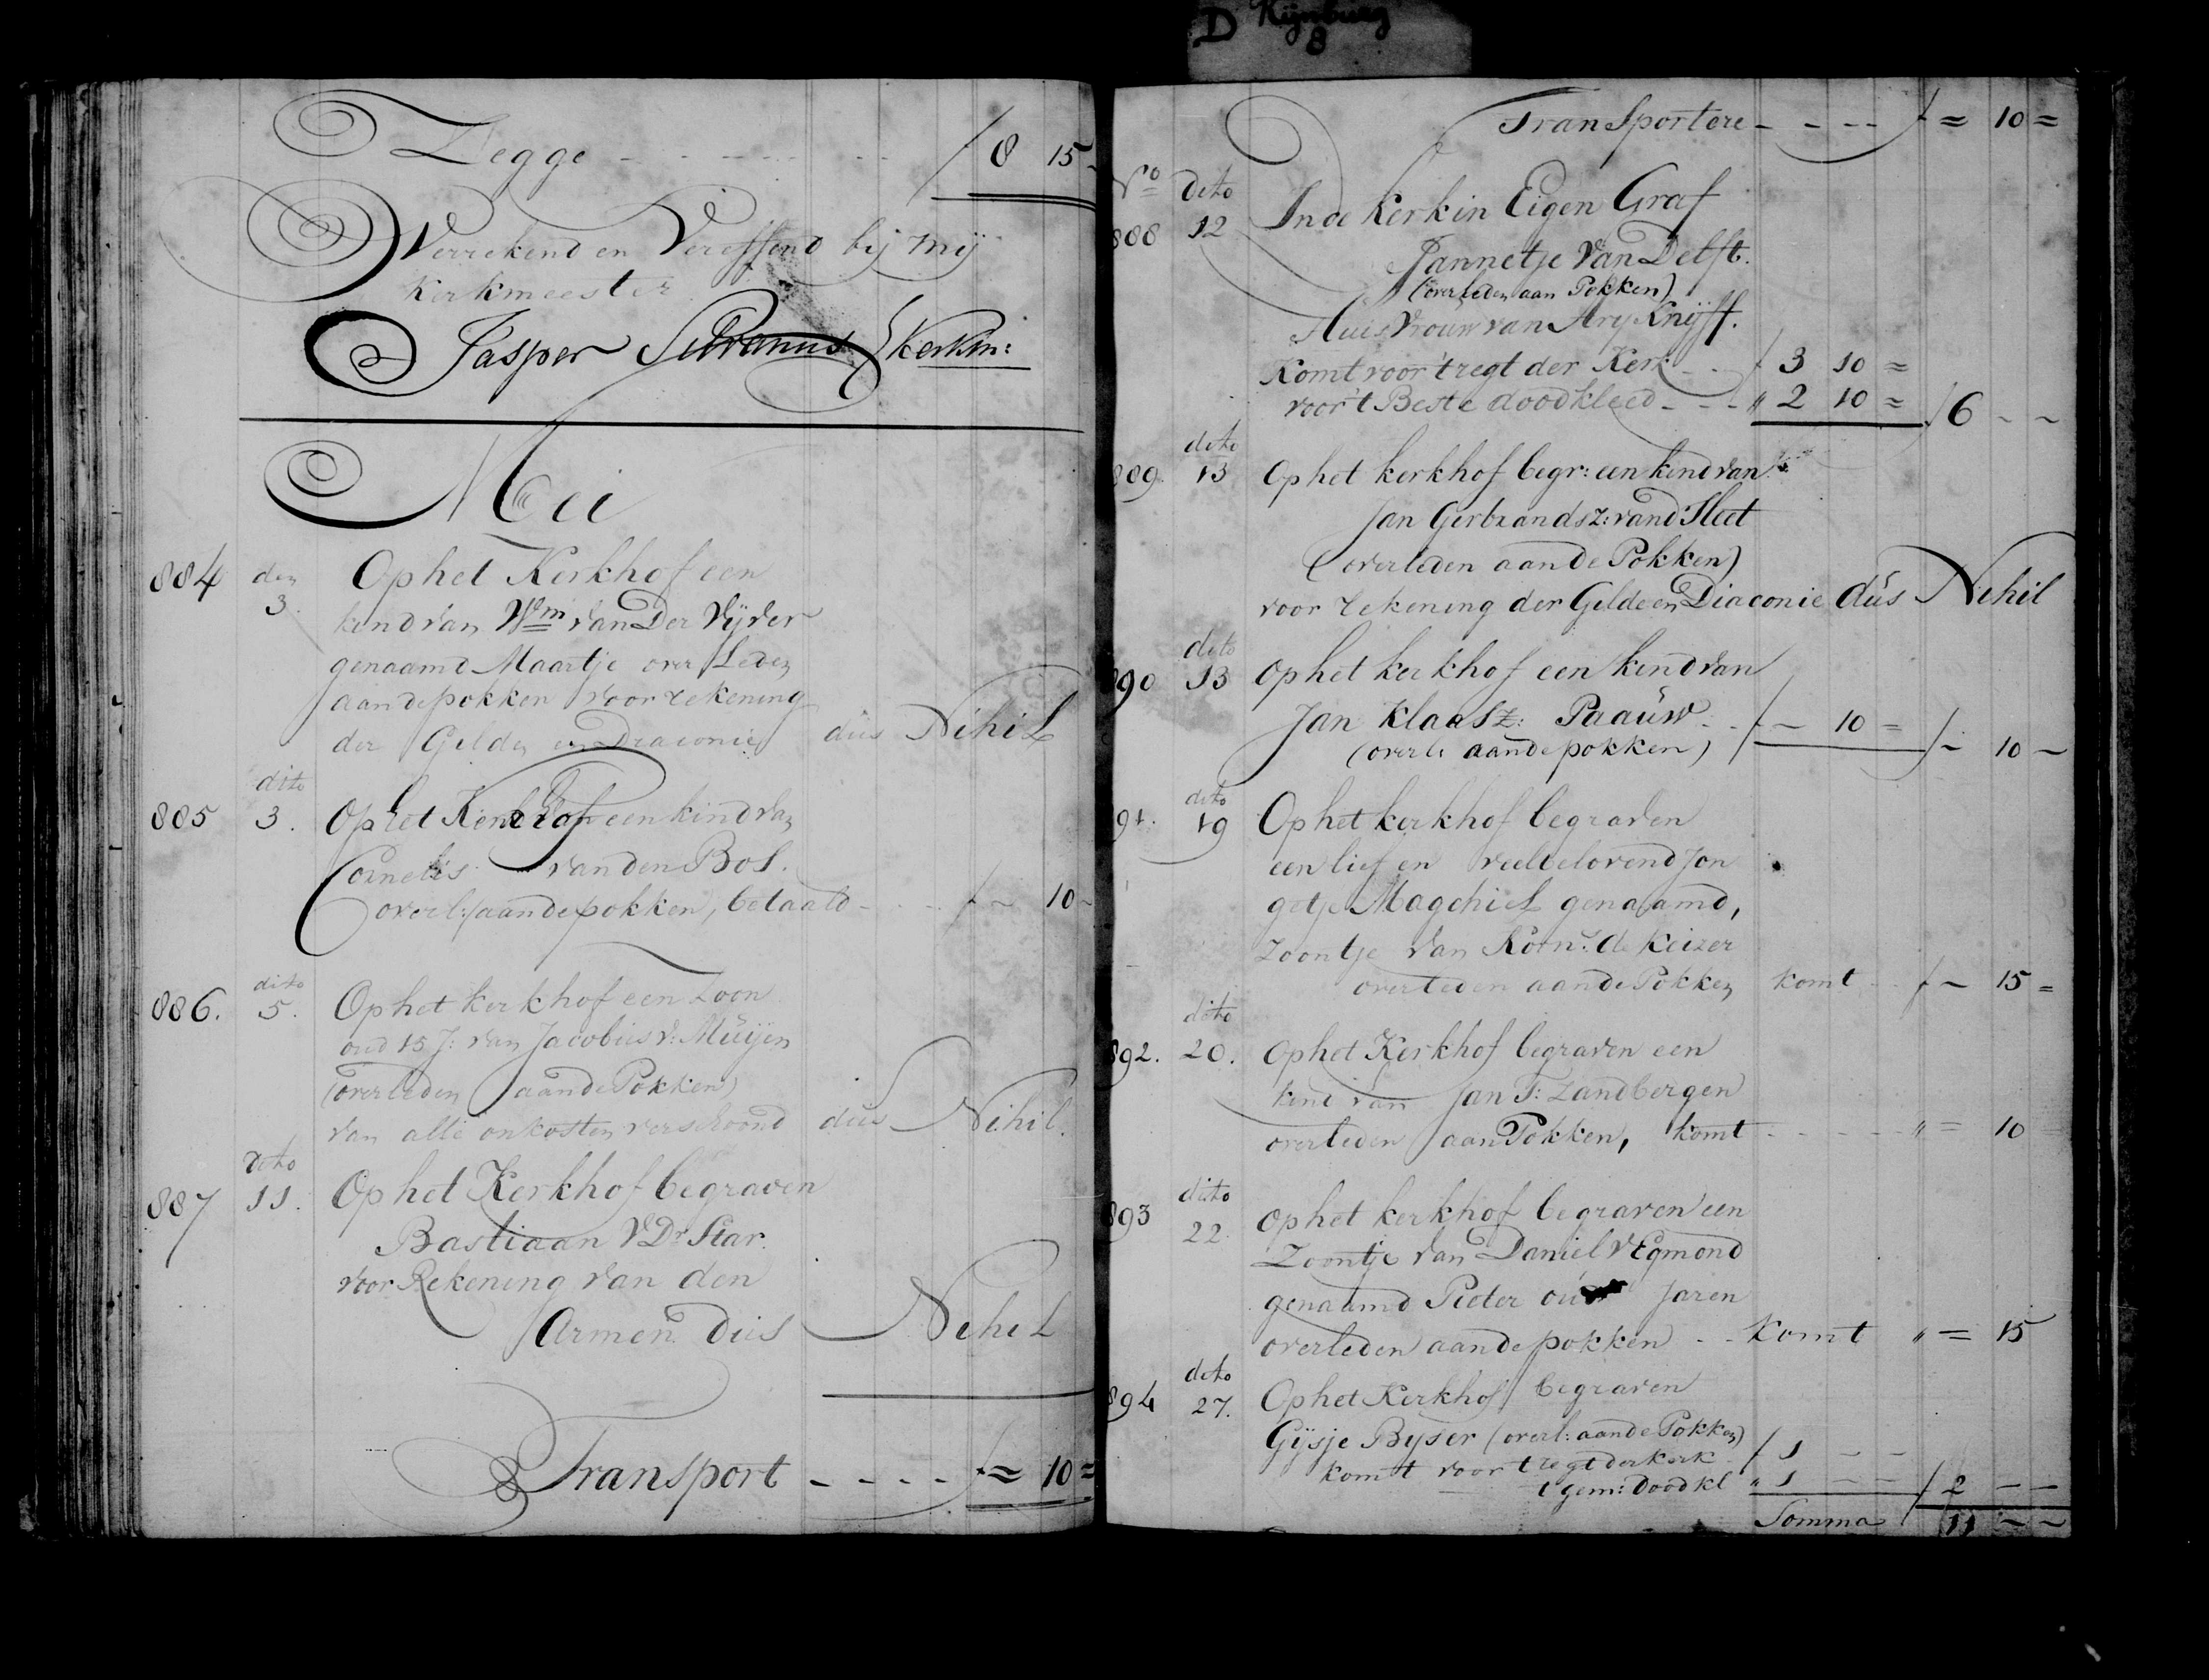 D Rijnburg
8
Zegge - - - - - - ƒ 8 15 -
Verrekend en Vereffend bij mij
Kerkmeester
Jasper Kerkm:
Mei
884 den 3. Op het Kerkhof een
kind van Wm van Der Vijver
genaamd Maartje over Leden
aan de pokken voor rekening
der Gilde en Diaconie dus NihiL
885 dito 3. Op het Kerkhof een kind van
Cornelis van den Bos.
overl: aan de pokken, betaald - - - ƒ ~ 10 -
886. dito 5. Op het kerkhof een Zoon
oud 15 J: van Jacobus v: Muijen
(overleden aan de Pokken)
van alle onkosten verschoond dus Nihil.
887 dito 11. Op het Kerkhof begraven
Bastiaan V Dr Star.
voor Rekening van den
Armen dus NiheL
Transport - - - - ƒ = 10 =
Transportere - - - - ƒ = 10 =
No dito
888 12 In de Kerk in Eigen Graf
Jannetje Van Delft.
(overleden aan Pokken)
Huis Vrouw van Ary Knijff.
Komt voor 't regt der Kerk - - ƒ 3 10 =
voor 't Beste doodkleed - - - " 2 10 = ƒ 6 - ~
889. dito 13 Op het kerkhof begr: een kend van
Jan Gerbrandsz: vand Sleet
(overleden aan de Pokken)
voor rekening der Gilde en Diaconie dus Nehil
890 dito 13 Op het kerkhof een kend van
Jan Klaasz: Paauw - ƒ ~ 10 = ƒ ~ 10 ~
(overl: aan de pokken)
891. dito 19 Op het kerkhof begraven
een lief en veelbelovend Jon
getje MagchieL genaamd,
Zoontje van Korns. de Keizer
overleden aan de Pokken komt - - ƒ ~ 15 =
892. dito 20. Op het Kerkhof begraven een
kend van Jan T: Zandbergen
overleden aan Pokken, komt - - - - - " = 10
893 dito 22. Op het kerkhof begraven een
Zoontje van Daniel v Egmond
genaamd Pieter oud Jaren
overleden aan de pokken - - komt " = 15
894 dito 27. Op het Kerkhof begraven
Gijsje Byser (overl: aan de Pokken)
komt voor t regt der kerk - ƒ 1 - -
t gem: Doodkl " 1 - - ƒ 2 - -
Somma ƒ 11 ~ ~